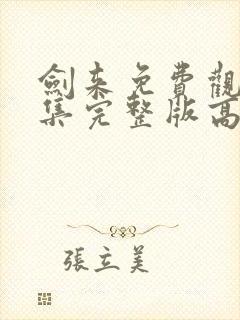 劍来免費觀
集完整版高
張立美